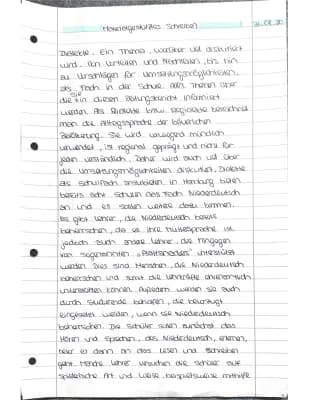 Materialgestütztes Schreiben
Dialekte. Ein Thema, worüber viel diskutiert
wird. Von Vorteilen und Nachteilen, bis hin
zu Vorschlägen für Umsetzungsmöglichkeiten,
als Fach in der Schule. Alles Themen über
die Sie in diesem Zeitungsbericht informiert
werden. Als Dialekte bzw. Regiolekte bezeichnet
man die Alltagssprache der bäuerlichen
Bevölkerung. Sie wird vorwiegend mündlich
verwendet, ist regional geprägt und nicht für
jeden verständlich. Daher wird auch viel über
die Umsetzungsmöglichkeiten diskutiert, Dialekte
als Schulfach anzubieten. In Hamburg bieten
bereits acht Schulen das Fach Niederdeutsch
an und es sollen weitere dazu kommen.
Es gibt Lehrer, die Niederdeutsch bereits
beherrschen, da es ihre Muttersprache ist
jedoch auch andere Lehrer, die hingegen
von sogenannten „Plattsnackers" unterstützt
werden. Dies sind Menschen, die Niederdeutsch
beherrschen und somit die Lehrkräfte ehrenamtlich
unterstützen können. Außerdem werden sie auch
durch Studierende beholfen, die bevorzugt
eingesetzt werden, wenn sie Niederdeutsch
beherrschen. Die Schüler sollen zunächst das
Hören und Sprechen, des Niederdeutsch, erlernen,
bevor es dann an das Lesen und Schreiben
geht. Manche Lehrer versuchen die Schüler auf
spielerische Art und Weise, beispielsweise mithilfe